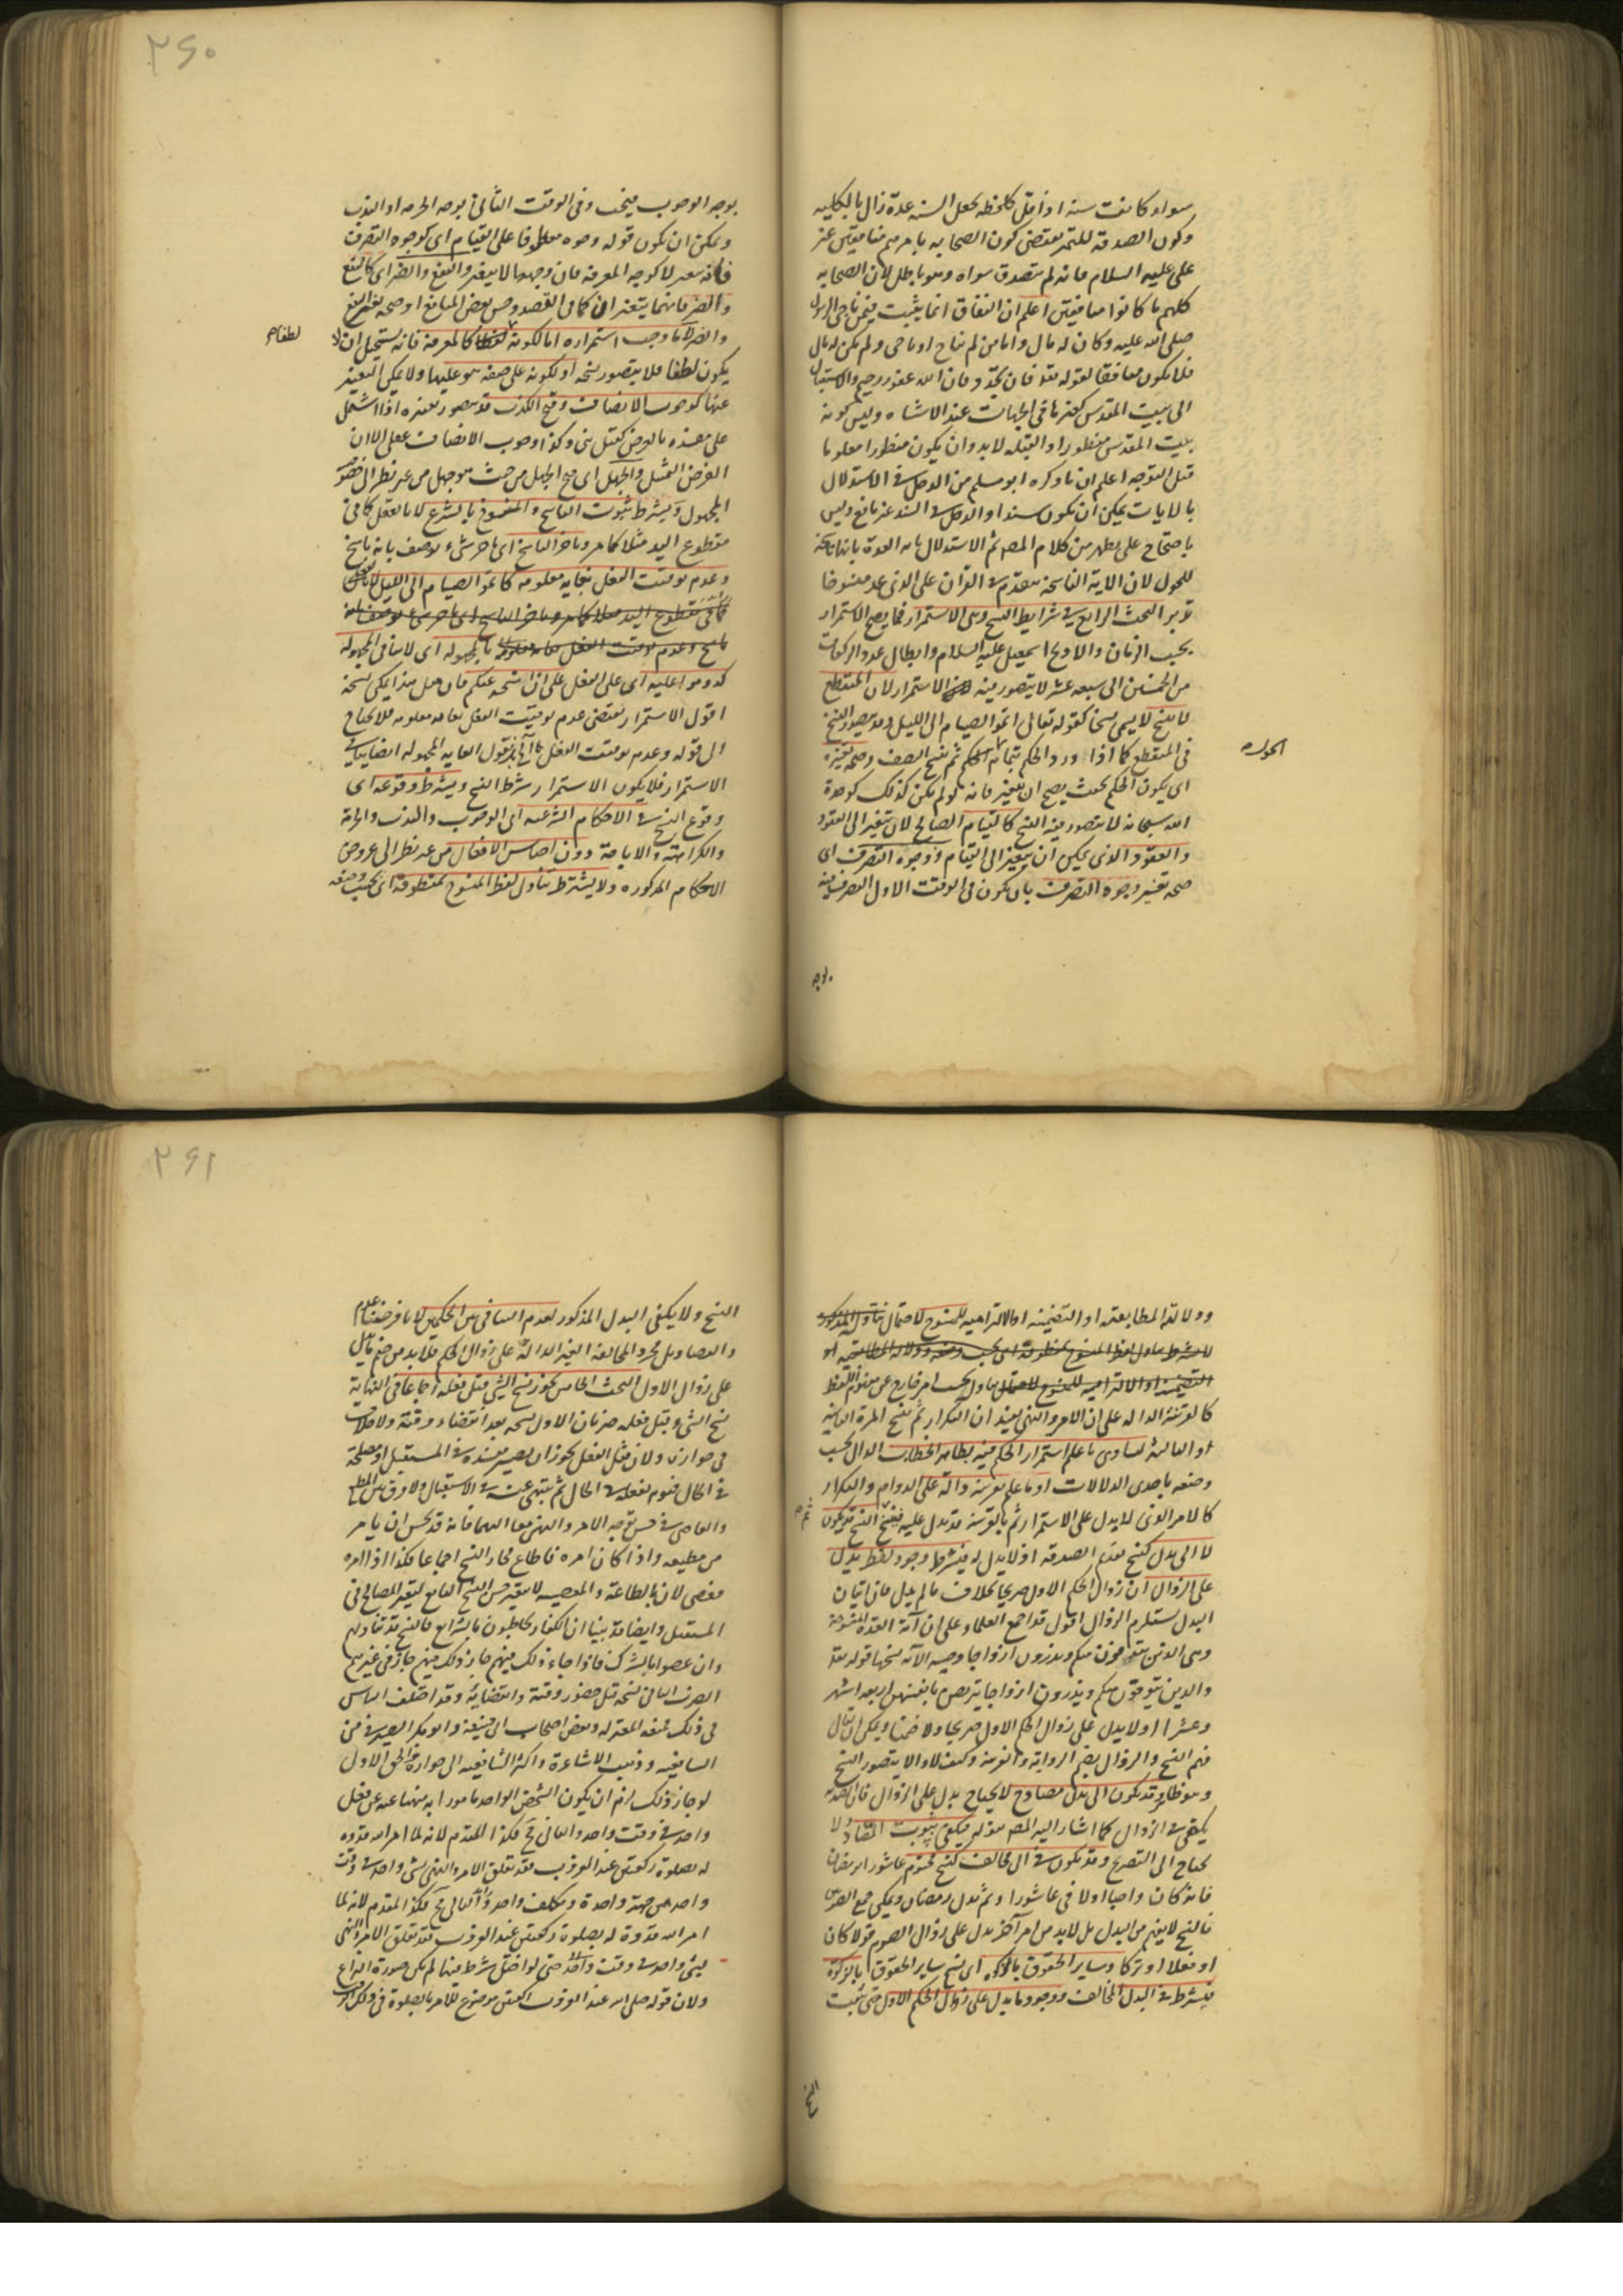 سواء كانت سنة او اقل كلحظة يجعل السنة عدة زال بالكلية
وكون الصدقة للتميز يقتضي كون الصحابة باسرهم منافقين غير
علي عليه السلام فانه لم يتصدق سواه وهو باطل لان الصحابة
كلهم ما كانوا منافقين اعلم ان النفاق انما يثبت فيمن ناجى الرسول
صلى الله عليه وكان له مال واما من لم يناج او ناجى ولم يكن له مال
فلا يكون منافقا لقوله تعالى فان لم تجدوا فان الله غفور رحيم والاستقبال
الى بيت المقدس كغيرها في الجهات عند الاشتباه وليس كونه
بيت المقدس منظورا والقبلة لابد وان يكون منظورا معلوما
قبل التوجه اعلم ان ما ذكره ابو مسلم من الدخل في الاستدلال
بالايات يمكن ان يكون سندا والدخل في السند غير نافع وليس
باحتجاج على ما يظهر من كلام المص ثم الاستدلال بان العدة بانها ناسخة
للحول لان الاية الناسخة متقدم في القران على الذي عد منسوخا
تدبر البحث الرابع في شرايط النسخ وهي الاستمرار فيما يصح الاستمرار
بحسب الزمان والا وبح اسمعيل عليه السلام وابطال عدد الركعات
من الخمسين الى سبعة عشر لا يتصور فيه الاستمرار لان المنقطع
لا ينسخ لا يسمى نسخا كقوله تعالى اتموا الصيام الى الليل وقد يتصور النسخ
في المنقطع كما اذا ورد الحكم بتمامه الحكم ثم نسخ النصف وصحة تغيره
الحول
اى يكون الحكم بحيث يصح ان يتغير فانه لو لم يكن كذلك كوحدة
الله سبحانه لا يتصور فيه النسخ كالقيام الصالح لان يتغير الى القعود
والقعود الذي يمكن ان يتغير الى القيام ووجوه التصرف اى
صحة تغير وجوه التصرف بان يكون في الوقت الاول التصرف فيه
بوجه
٢٦٠
بوجه الوجوب فينسخ وفي الوقت الثاني بوجه الحرمة او الندب
ويمكن ان يكون قوله وجوه معطوفا على القيام اى كوجوه التصرف
فانه يتغير لا كوجه المعرفة فان وجهها لا يتغير والنفع والضر اى كالنفع
والضر فانهما يتغيران كما في القصد وحسن بعض المبايع او صحة تغير النفع
والضر لا ما وجب استمراره اما لكونه كالمعرفة فانه يستحيل ان لا
لطفا م
يكون لطفا فلا يتصور نسخه او لكونه على صفة هو عليها ولا يمكن التغير
عنها كوجوب الانصاف وقبح الكذب قد يتصور تغيره اذا اشتمل
على مفسدة بالعرض كقتل نبي وكذا وجوب الانصاف عقلى الا ان
الغرض التمثيل والجهل اى قبح الجهل من حيث هو جهل من غير نظر الى خصوص
المجهول ويشترط ثبوت الناسخ والمنسوخ بالشرع لا بالعقل كما في
مقطوع اليد مثلا كما مر وتاخر الناسخ اى تاخر شيء يوصف بانه ناسخ
وعدم توقيت الفعل بغاية معلومة كاتموا الصيام الى الليل لا بالعقل
كما في مقطوع اليد مثلا كما مر وتاخر الناسخ اى تاخر شيء يوصف بانه
ناسخ وعدم توقيت الفعل بغاية معلومة لا بالمجهولة اى لا ينافي المجهولة
كدوموا عليه اى على الفعل على ان انسخه عنكم فان قيل هذا يكن نسخه
اقول الاستمرار يقتضي عدم توقيت الفعل بغاية معلومة فلا يحتاج
الى قوله وعدم توقيت الفعل الى اخره نقول الغاية المجهولة ايضا ينافي
الاستمرار فلا يكون الاستمرار شرط النسخ ويشترط وقوعه اى
وقوع النسخ في الاحكام الشرعية اى الوجوب والندب والحرمة
والكراهة والاباحة دون اجناس الافعال من غير نظر الى عروض
الاحكام المذكورة ولا يشترط تناول لفظ المنسوخ بمنطوقه اى بحسب وضعه
ودلالته المطابقية او التضمنية او الالتزامية للمنسوخ لاحتمال تناوله المذكور
لا يشترط تناول لفظ المنسوخ بمنطوقه اى بحسب وضعه ودلالته المطابقية او
التضمنية او الالتزامية للمنسوخ لاحتمال تناوله بحسب امر خارج عن مفهوم اللفظ
كالقرينة الدالة على ان الامر والنهي يفيد ان التكرار ثم ينسخ المرة الثانية
او الثالثة لتساوي ما علم استمرار الحكم فيه بظاهر الخطاب الدال بحسب
وضعه باحدى الدلالات او ما علم بقرينة دالة على الدوام والتكرار
كالامر الذي لا يدل على الاستمرار ثم بالقرينة قد يدل عليه فينسخ النسخ قد يكون
ثم
لا الى بدل كنسخ تقديم الصدقة اذ لا بدل له فيشترط وجود لفظ يدل
على الزوال اى زوال الحكم الاول صريحا بخلاف ما لم يبدل فان اتيان
البدل يستلزم الزوال اقول قد اجمع العلماء على ان آية العدة المنسوخة
وهي الذين يتوفون منكم ويذرون ازواجا وصية الآية نسخها قوله تعالى
والذين يتوفون منكم ويذرون ازواجا يتربصن بانفسهن اربعة اشهر
وعشرا او لا يدل على زوال الحكم الاول صريحا ولا ضمنا ويمكن ان يقال
فهم النسخ والزوال بضم الرواية والقرينة وكيف لا والا لا يتصور النسخ
وهو ظاهر وقد يكون الى بدل مضاد ولا يحتاج بدل على الزوال فان الضدية
يكفي في الزوال كما اشار اليه المص بقوله فيكفي ثبوت المضاد ولا
يحتاج الى التصريح وقد يكون الى مخالف كنسخ تحتم عاشورا برمضان
فانه كان واجبا اولا في عاشورا ء ثم بدل رمضان ويمكن جمع الصومين
فالنسخ لا يفهم من البدل بل لابد من امر آخر يدل على زوال الصوم قولا كان
او فعلا او تركا وساير الحقوق بالزكوة اى نسخ ساير الحقوق بالزكوة
فيشترط في البدل المخالف ووجود ما يدل على زوال الحكم الاول حتى يثبت
النسخ
٢٦١
النسخ ولا يكفي البدل المذكور لعدم التنافي بين الحكمين لانا فرضنا عدم
والتضاد بل مجرد المخالفة الغير الدالة على زوال الحكم فلابد من ضم ما يدل
على زوال الاول البحث الخامس يجوز نسخ الشي قبل فعله اجماعا في النهاية
نسخ الشيء قبل فعله ضربان الاول نسخه بعد انقضاء وقته ولا خلاف
في جوازه ولان مثل الفعل يجوز ان يصير مفسدة في المستقبل او مصلحة
في الحال فيوم بفعله في الحال ثم ينتهي عنه في الاستقبال ولا فرق بين المطيع
والعاصي في حسن توجه الامر والنهي معا اليهما فانه قد يحسن ان يامر
من يطيعه واذا كان امره فاطاع فجاز النسخ اجماعا فكذا اذا امره
فعصى لان بالطاعة والمعصية لا يتغير حسن النسخ التابع لتغير المصالح في
المستقبل وايضا قد بينا ان الكفار مخاطبون بالشرايع فالنسخ قد تناولهم
وان عصوا بالشرك فاذا جاء ذلك فيهم جاز ذلك فيهم جاز في غيرهم
الضرب الثاني نسخه قبل حضور وقته وانقضائه وقد اختلف الناس
في ذلك فمنعه المعتزلة وبعض اصحاب ابي حنيفة وابو بكر الصيرفي من
الشافعية وذهب الاشاعرة واكثر الشافعية الى جوازه والحق الاول
لو جاز ذلك لزم ان يكون الشخص الواحد مامورا به منهيا عنه عن فعل
واحد في وقت واحد والتالي مح فكذا المقدم لانه لما امر الله قدوه
له بصلوة ركعتين عند الغروب فقد تعلق الامر والنهي بشي واحد في وقت
واحد من جهة واحدة ومكلف واحد والتالي مح فكذا المقدم لانه لما
امر الله قدوة له بصلوة ركعتين عند الغروب فقد تعلق الامر والنهي
بشيء واحد في وقت واحد حتى لو اختل شرط فيها لم يكن صورة النزاع
ولان قوله صلى الله عند الغروب ركعتين موضوع للامر بالصلوة في ذلك الوقت